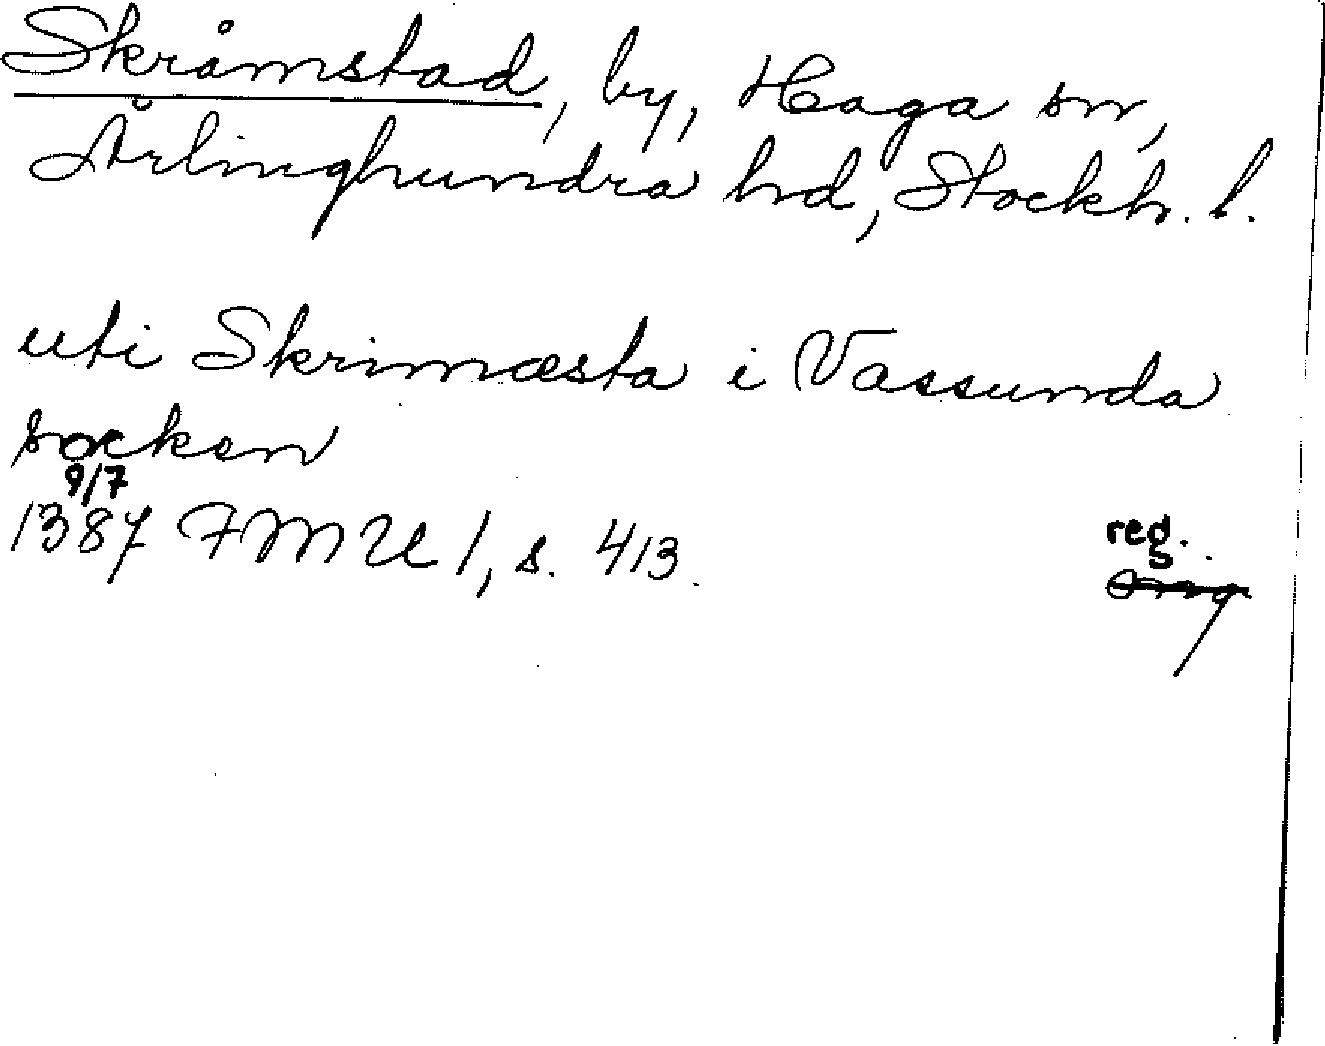 Skråmstad, by, Haga sn,
Ärlinghundra hd, Stockh. l.
uti Skrimæsta i Vassunda
socken
9/7
1387 FMU 1, s. 413.
reg.